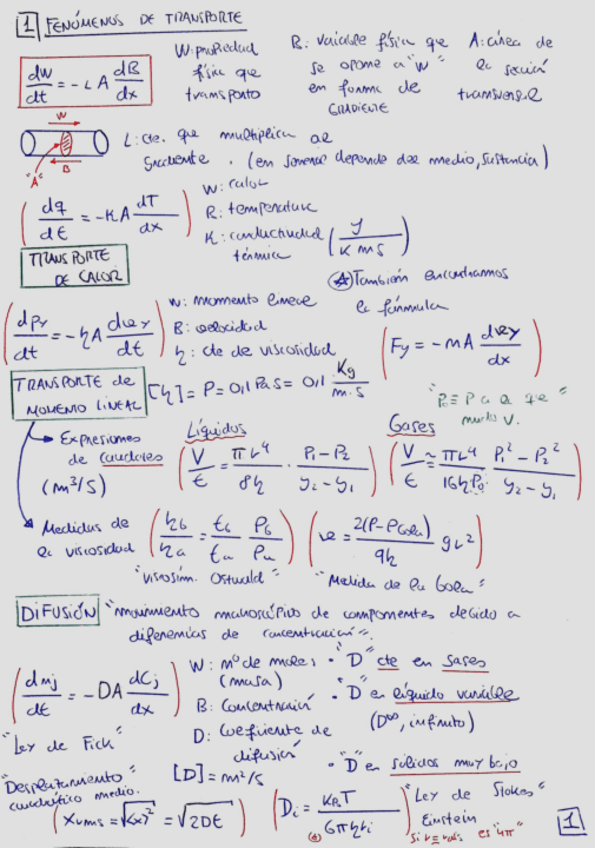 1 FENÓMENOS DE TRANSPORTE
dw/dt = -L A dB/dx
W: propiedad física que transporto
B: variable física que se opone a "W" en forma de GRADIENTE
A: área de la sección transversal
W
"A"
B
L: cte. que multiplica al gradiente. (en general depende del medio, sustancia)
dq/dt = -κA dT/dx
W: calor
B: temperatura
K: conductividad térmica (J / K m s)
TRANSPORTE DE CALOR
(A) También encontramos la fórmula
dpy/dt = -ηA dvy/dt
W: momento lineal
B: velocidad
η: cte de viscosidad
Fy = -mA dvy/dx
TRANSPORTE de MOMENTO LINEAL
[η] = P = 0,1 Pa s = 0,1 Kg/m·s
"P0 ≡ P a la que mido V.
Expresiones de caudales (m³/s)
Líquidos
V/t = πr⁴/8η · P1 - P2/y2 - y1
Gases
V/t ≈ πr⁴/16ηP0 · P1² - P2²/y2 - y1
Medidas de la viscosidad
ηb/ηa = tb/ta ρb/ρa
"Viscosím. Ostwald"
ve = 2(ρ - ρbola)/9η g r²
"Medida de la bola"
DIFUSIÓN "movimiento macroscópico de componentes debido a
diferencias de concentración".
dmj/dt = -DA dCj/dx
"Ley de Fick"
W: nº de moles (masa)
B: Concentración
D: Coeficiente de difusión
[D] = m²/s
• "D" cte en gases
• "D" en líquido variable
(D∞, infinito)
• "D" en sólidos muy bajo
"Desplazamiento cuadrático medio.
Xrms = √⟨x⟩² = √2Dt
Di = KBT/6πηri
(*)
"Ley de Stokes" Einstein
es "4π"
1